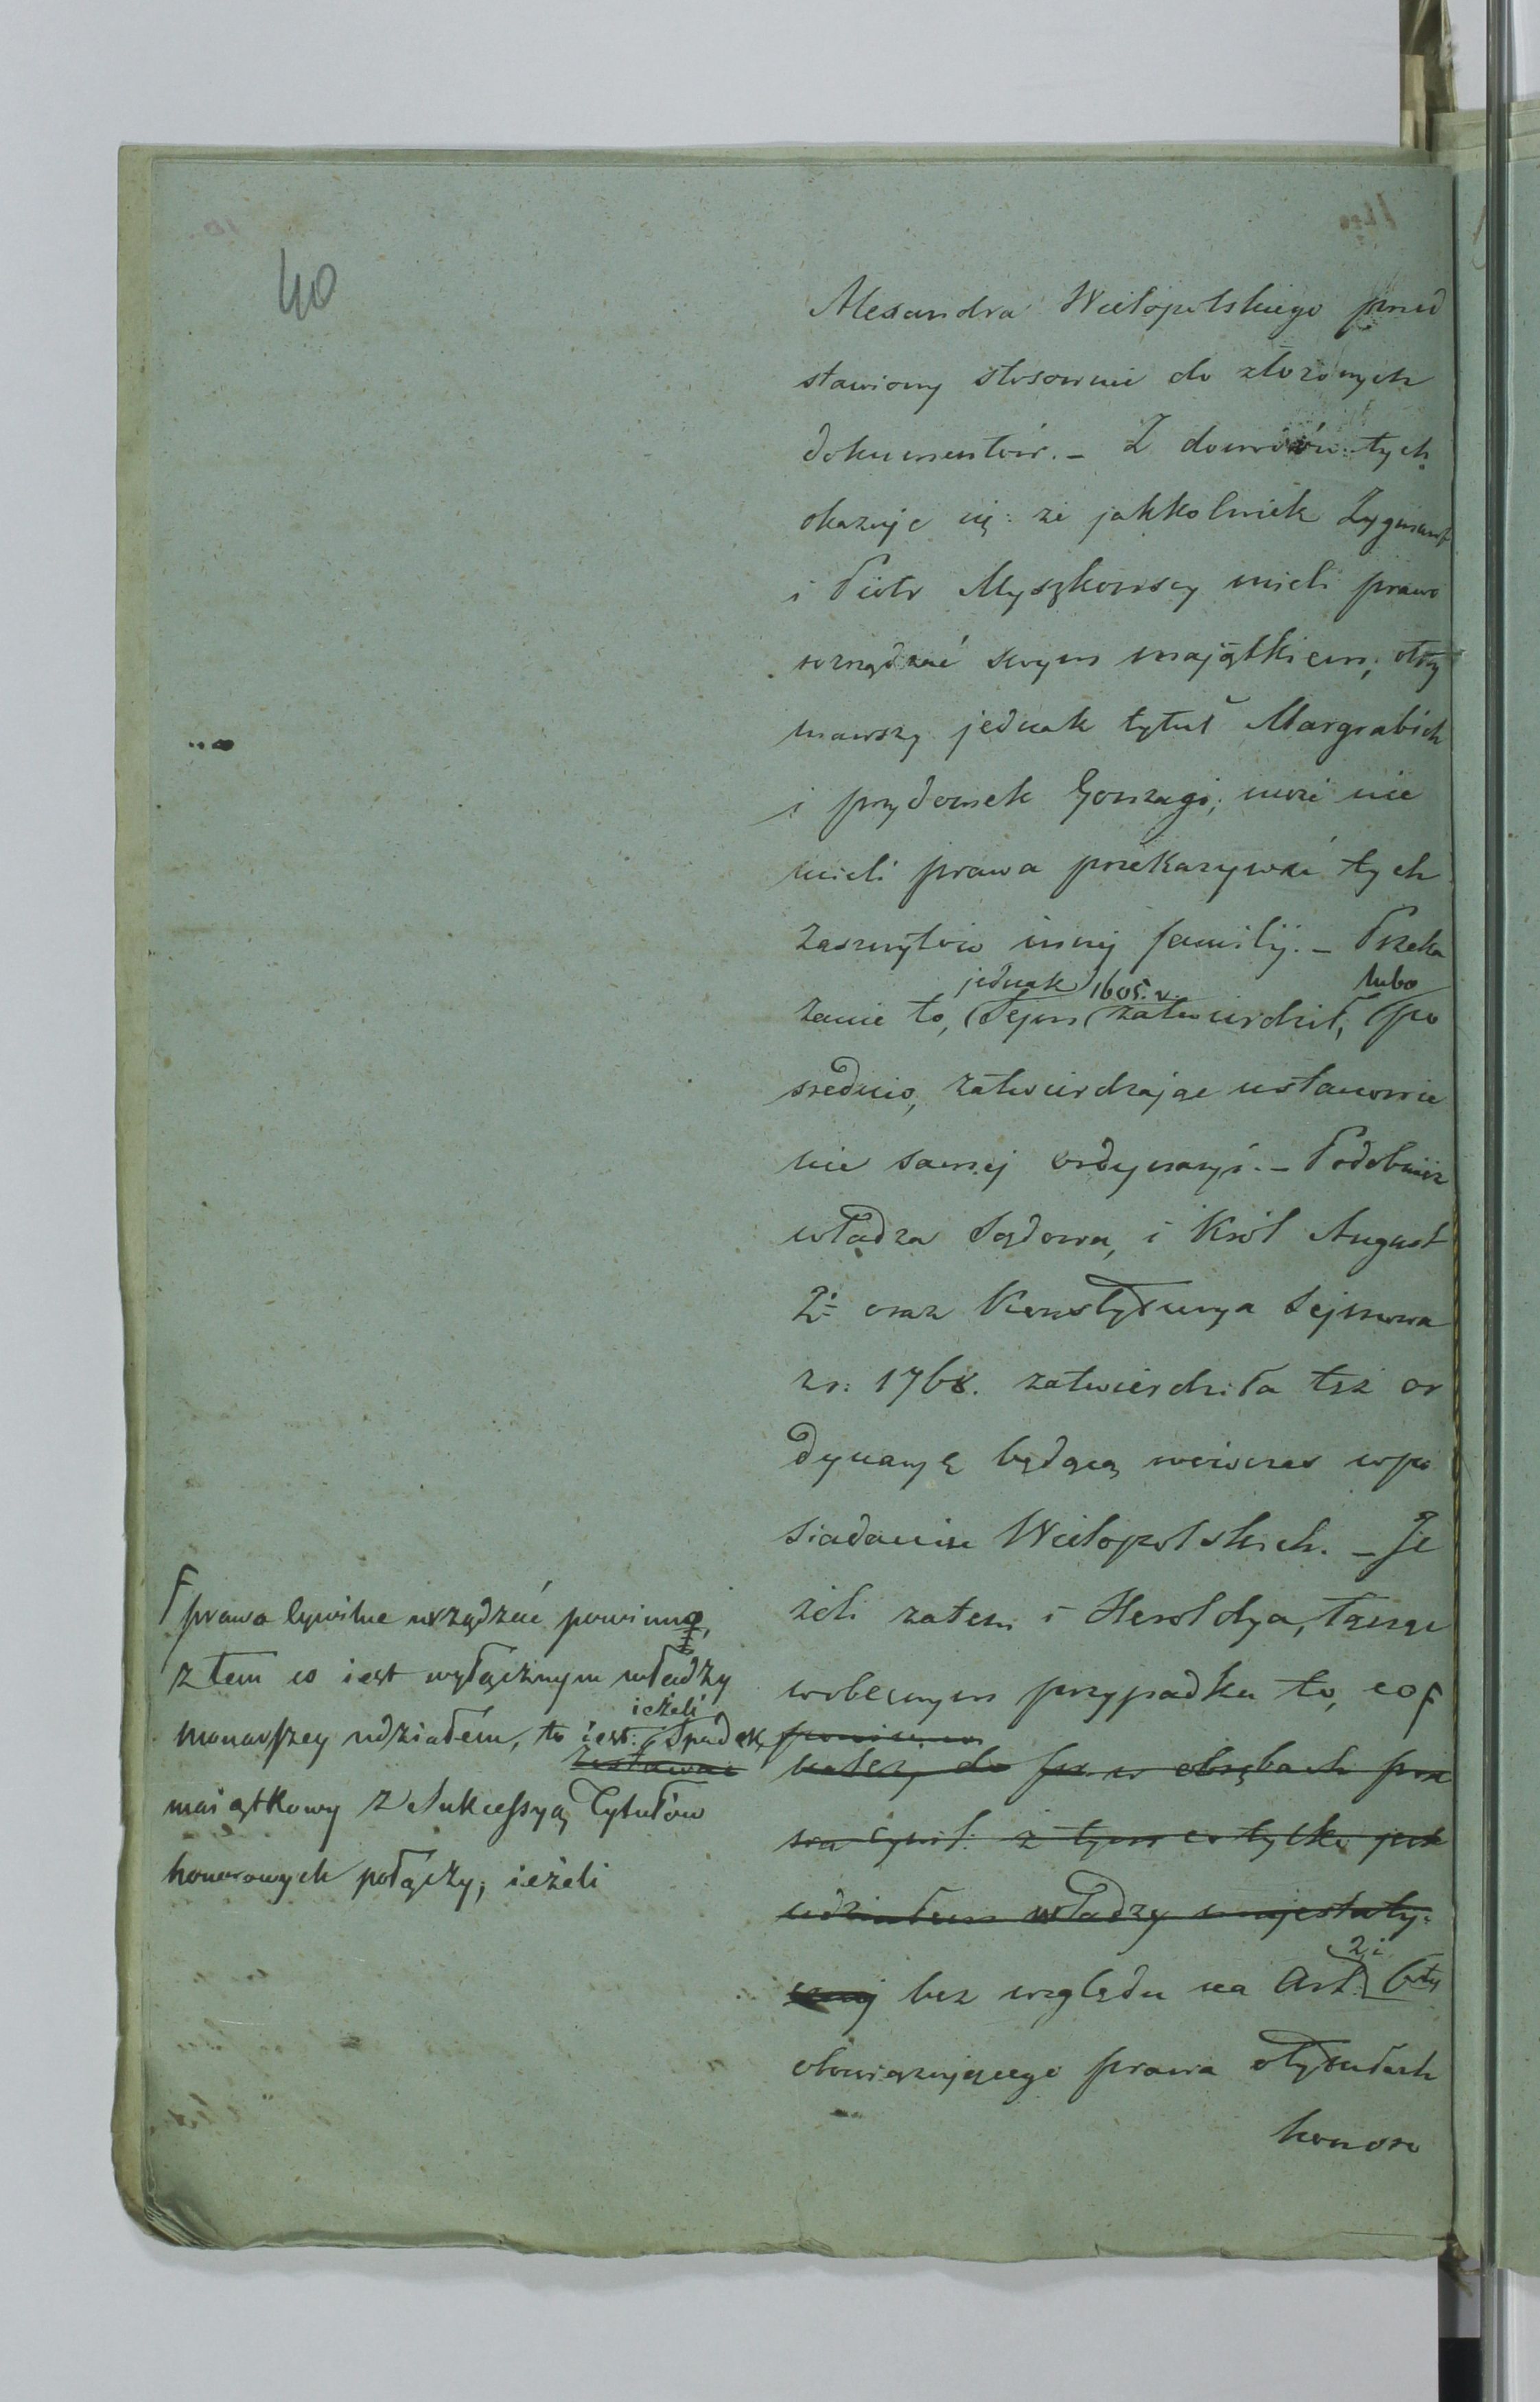 40
Alexandra Wielopolskiego przed
stawiony stosownie do złożonych
dokumentów. – Z dowodów tych
okazuje się: że jakkolwiek Zygmunt
i Piotr Myszkowscy mieli prawo
rozrządzać swym majątkiem, otrzy
mawszy jednak tytuł Margrabich
i przydomek Gonzagi, może nie
mieli prawa przekazywać tych
zaszczytów innej familij. – Przeka
jednak 1605. r. lubo
zanie to, Sejm zatwierdził, po
srednio, zatwierdzając ustanowie
nie samej ordynacyi. – Podobnież
władza Sądowa, i Król August
2i oraz Konstytucya Sejmowa
z r: 1768. zatwierdziła też or
dynacyę będącą wówczas w po
siadaniu Wielopolskich. – Je
żeli zatem i Heroldya, łącząc
w obecnym przypadku to, co
powinno
należy do w obrębach pra
wa cywil: z tym co tylko jest
udziałem władzy majestaty-
cznej bez względu na Art: 2 i 6ty
obowiązującego prawa o tytułach
honoro
prawa Cywilne urządzać powinno,
z tem co iest wyłącznym władzy
ieżeli
monarszey udziałem, to iest: Spadek
zestawać
maiątkowy z Sukcessyą Tytułów
honorowych połączy, ieżeli